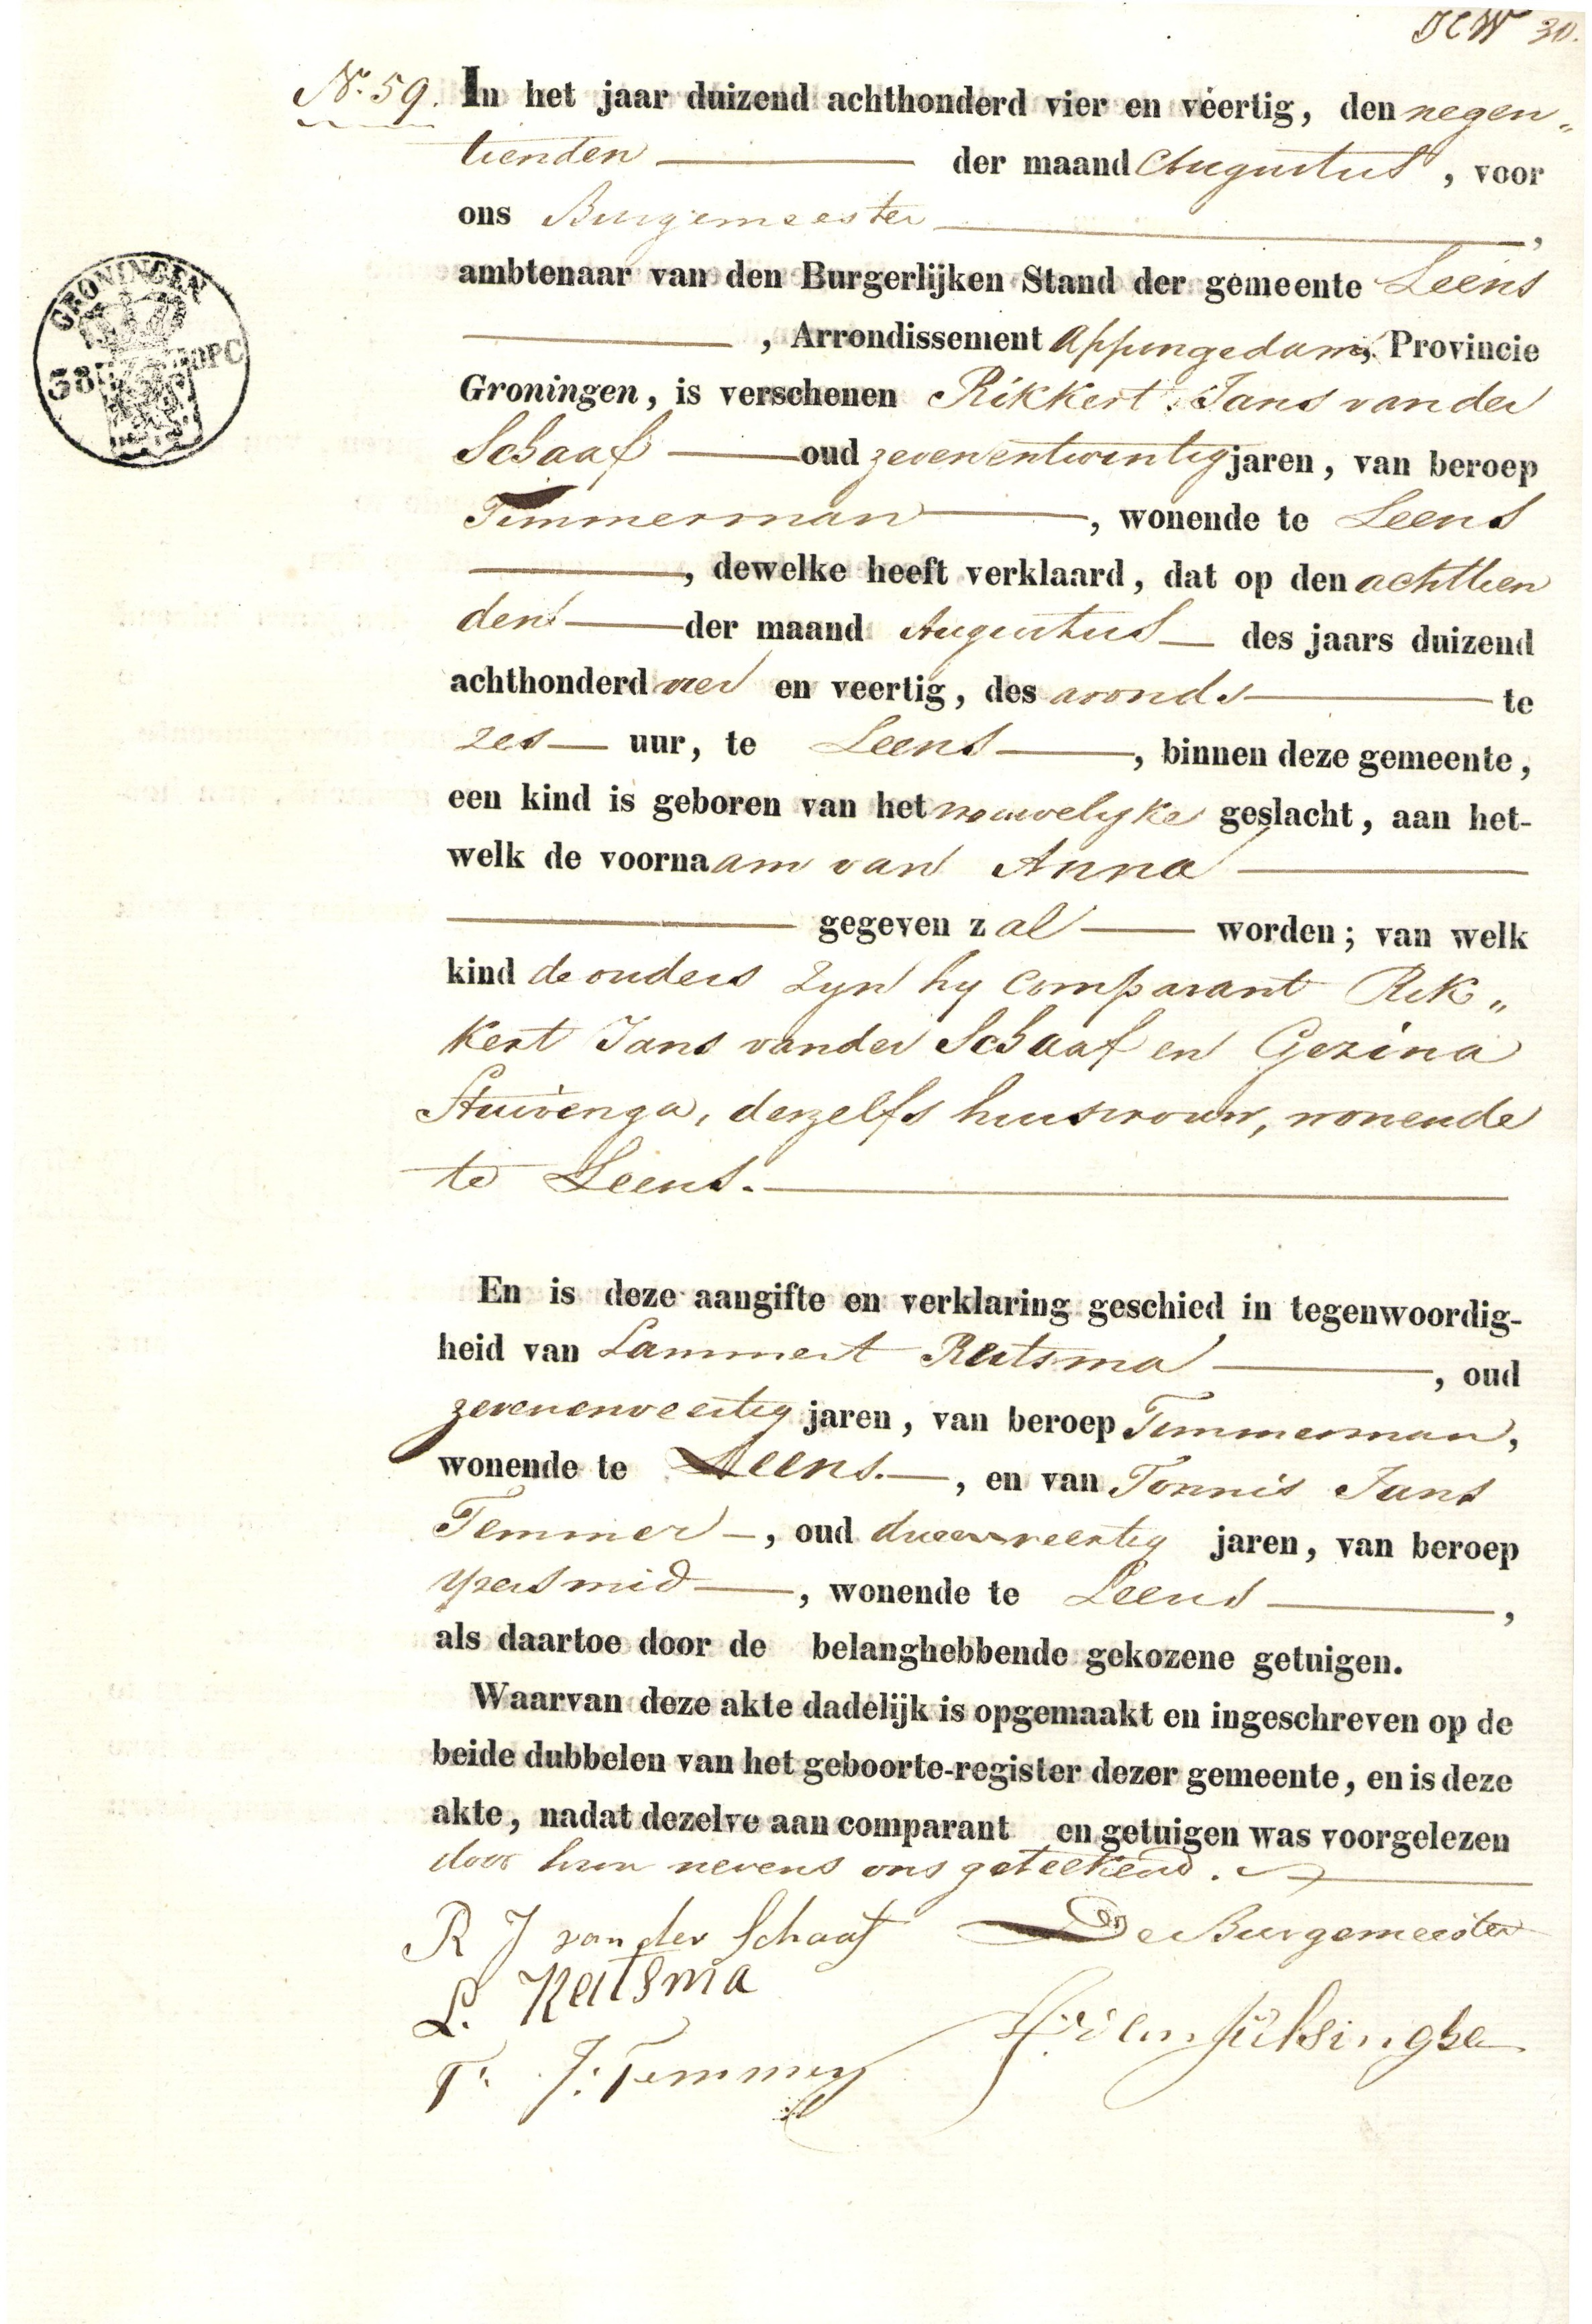 JCW 30.
No. 59. In het jaar duizend achthonderd vier en veertig, den negen„
tienden der maand Augustus, voor
ons Burgemeester,
ambtenaar van den Burgerlijken Stand der gemeente Leens
, Arrondissement Appingedam, Provincie
GRONINGEN
38 OPC
Groningen, is verschenen Rikkert Jans van der
Schaaf oud zevenentwintig jaren, van beroep
Timmerman, wonende te Leens
, dewelke heeft verklaard, dat op den achttien
den der maand Augustus des jaars duizend
achthonderd vier en veertig, des avonds te
zes uur, te Leens, binnen deze gemeente,
een kind is geboren van het vrouwelyke geslacht, aan het-
welk de voornaam van Anna
gegeven zal worden; van welk
kind de ouders zyn hy comparant Rik„
kert Jans van der Schaaf en Gezina
Stuivenga, deszelfs huisvrouw, wonende
te Leens.
En is deze aangifte en verklaring geschied in tegenwoordig-
heid van Lammert Reitsma, oud
zevenenveertig jaren, van beroep Timmerman,
wonende te Leens, en van Tonnis Jans
Temmer, oud drieenveertig jaren, van beroep
yzersmid, wonende te Leens,
als daartoe door de belanghebbende gekozene getuigen.
Waarvan deze akte dadelijk is opgemaakt en ingeschreven op de
beide dubbelen van het geboorte-register dezer gemeente, en is deze
akte, nadat dezelve aan comparant en getuigen was voorgelezen
door hun nevens ons geteekend.
R J van der Schaaf De Burgemeester
L. Reitsma
T. J. Temmer